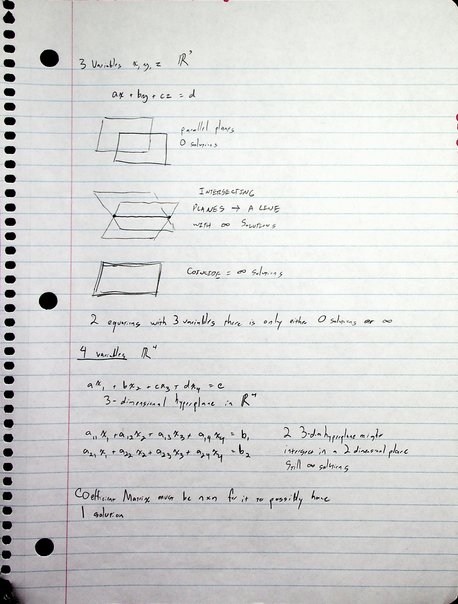 3 Variables x, y, z ℝ³
ax + by + cz = d
parallel planes
0 solutions
INTERSECTING
PLANES → A LINE
WITH ∞ SOLUTIONS
COINCIDE = ∞ solutions
2 equations with 3 variables there is only either 0 solutions or ∞
4 variables ℝ⁴
ax₁ + bx₂ + cx₃ + dx₄ = e
3-dimensional hyperplane in ℝ⁴
a₁₁x₁ + a₁₂x₂ + a₁₃x₃ + a₁₄x₄ = b₁
a₂₁x₁ + a₂₂x₂ + a₂₃x₃ + a₂₄x₄ = b₂
2 3-dim hyperplane might
intersect in a 2 dimensional plane
Still ∞ solutions
Coefficient Matrix must be nxn for it to possibly have
1 solution